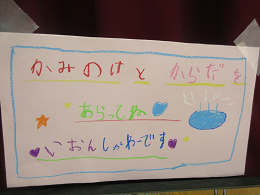 かみのけとからだを
あらってね
いおんしゃわーです